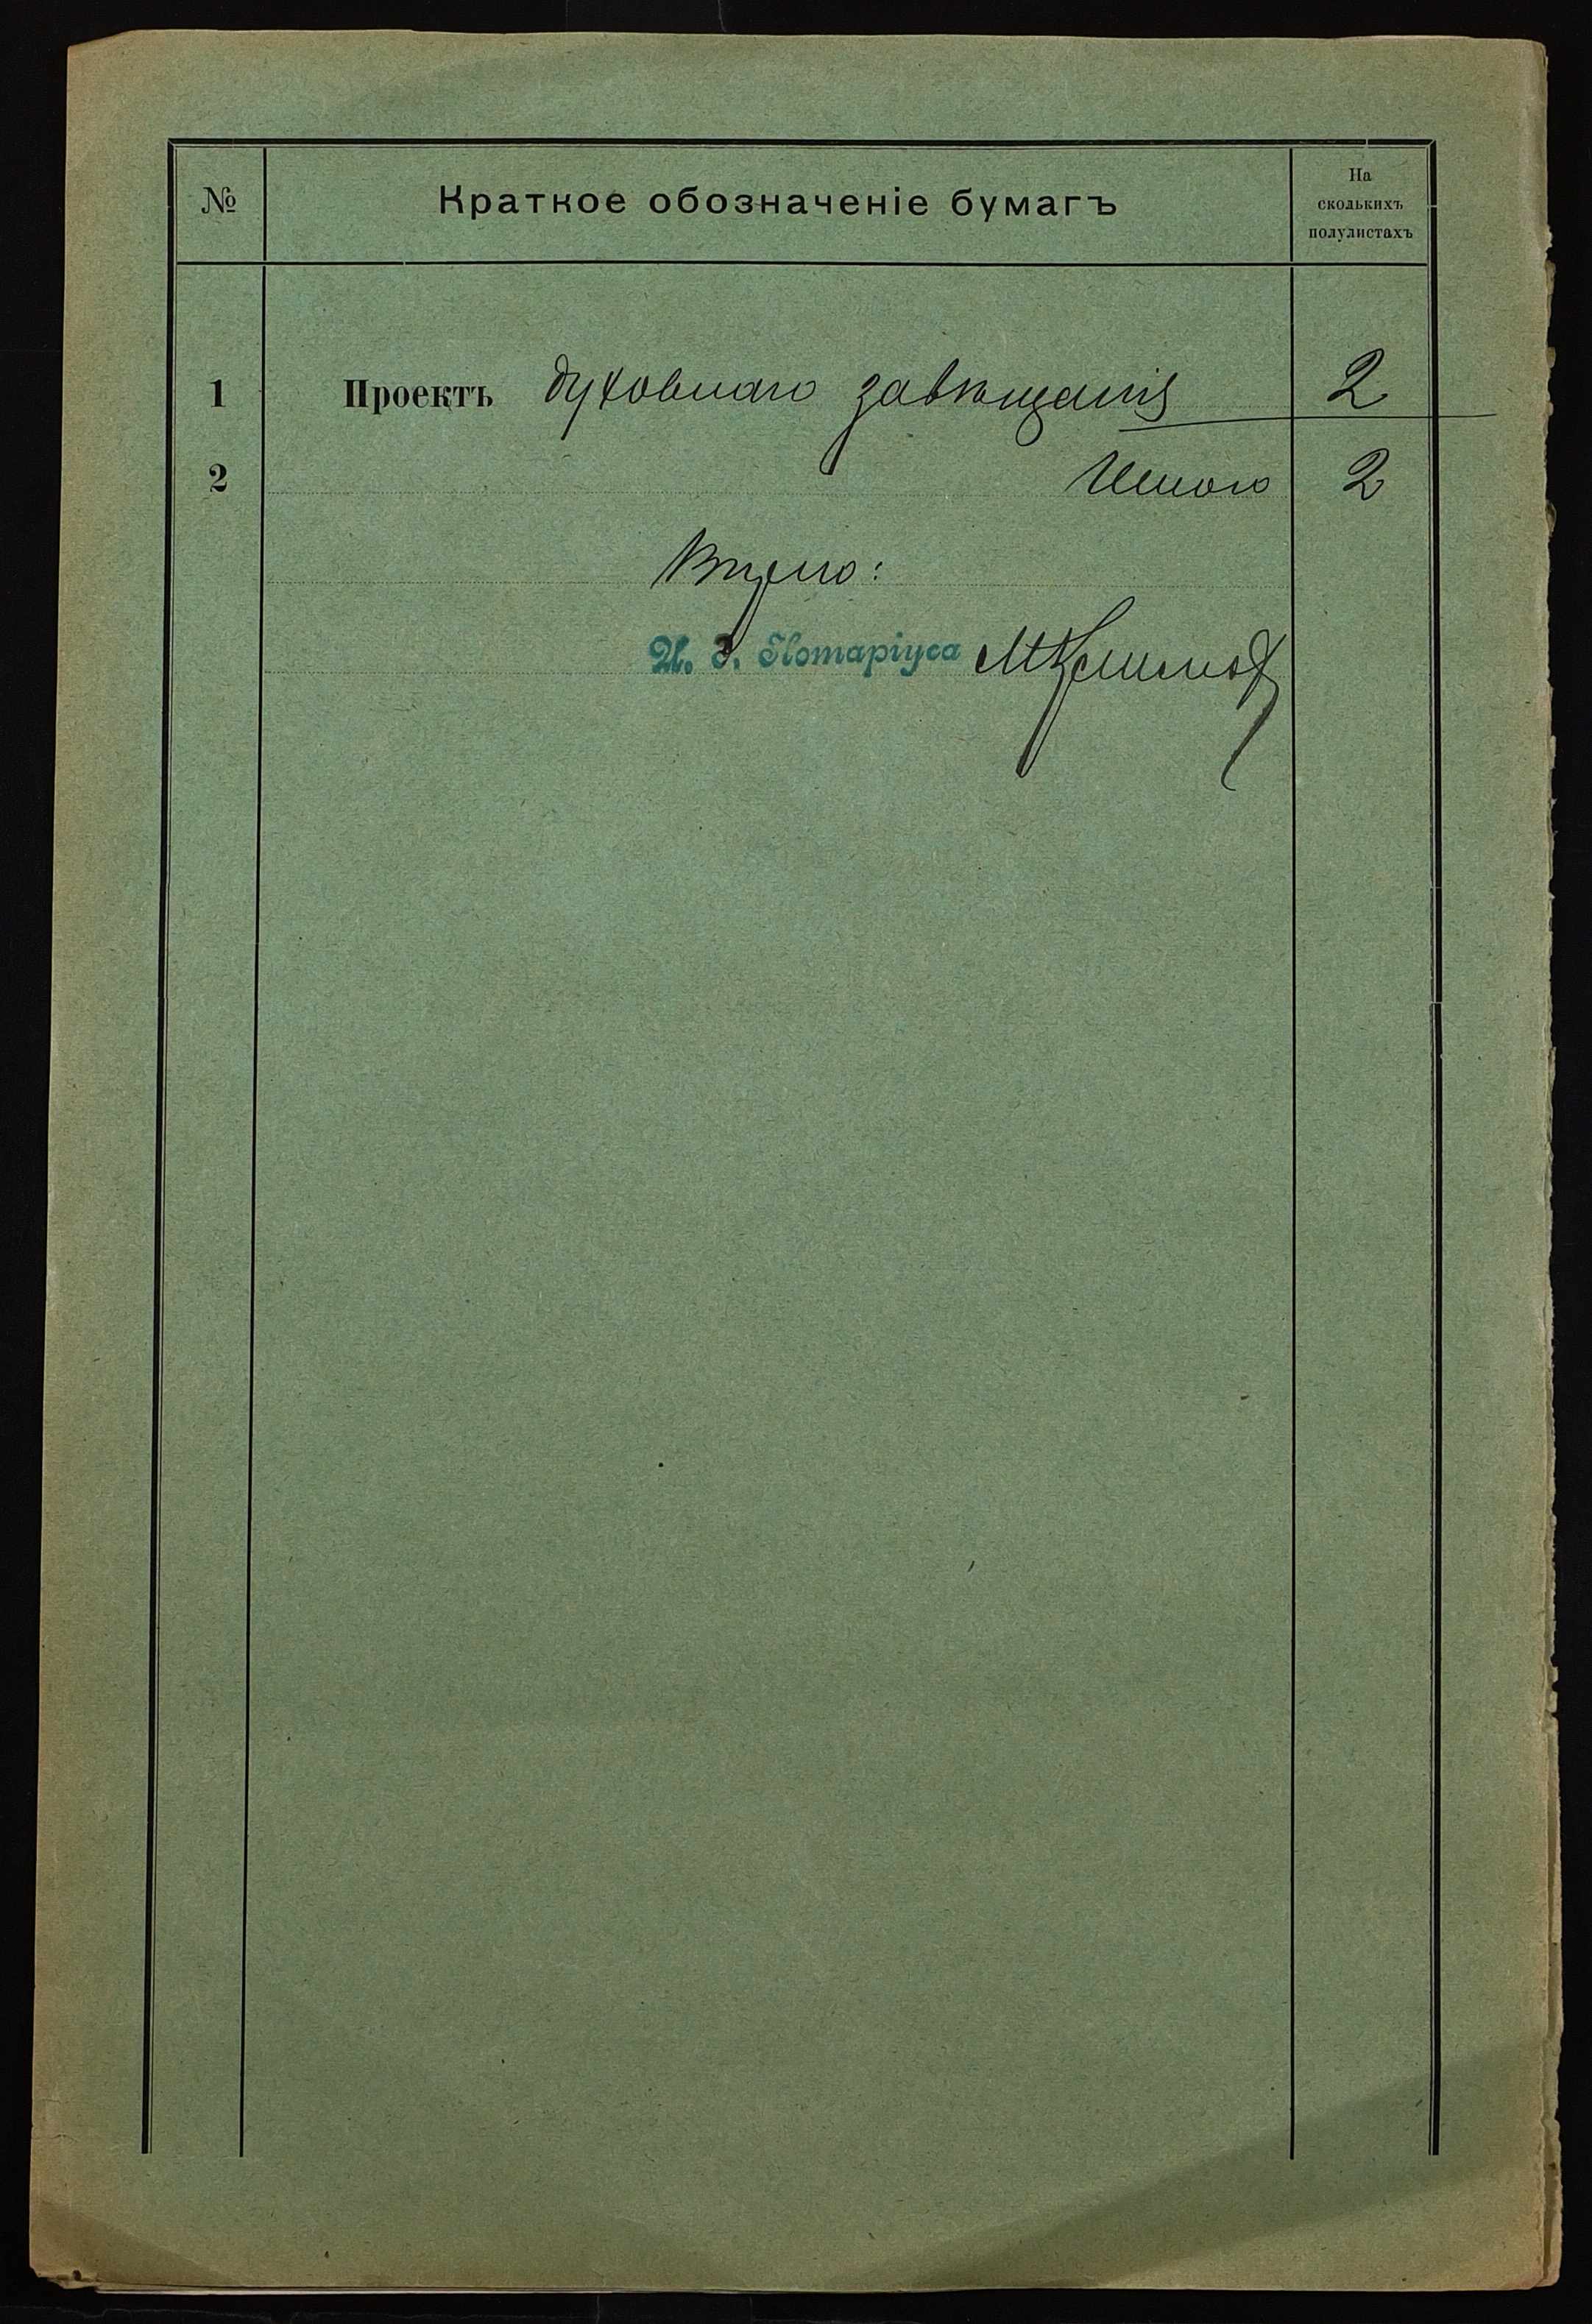 №
Краткое обозначеніе бумагъ
На
сколькихъ
полулистахъ
1 Проектъ духовнаго завѣщанія 2
2 Итого 2
Вѣрно:
И. д. Нотаріуса